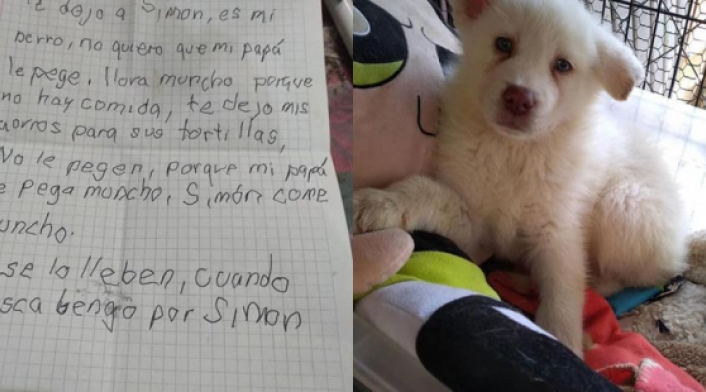 dejo a Simon, es mi
perro, no quiero que mi papá
le pege, llora muncho porque
no hay comida, te dejo mis
para sus tortillas,
No le pegen, porque mi papá
pega moncho, Simón come
uncho.
se lo lleben, cuando
sca bengo por Simon